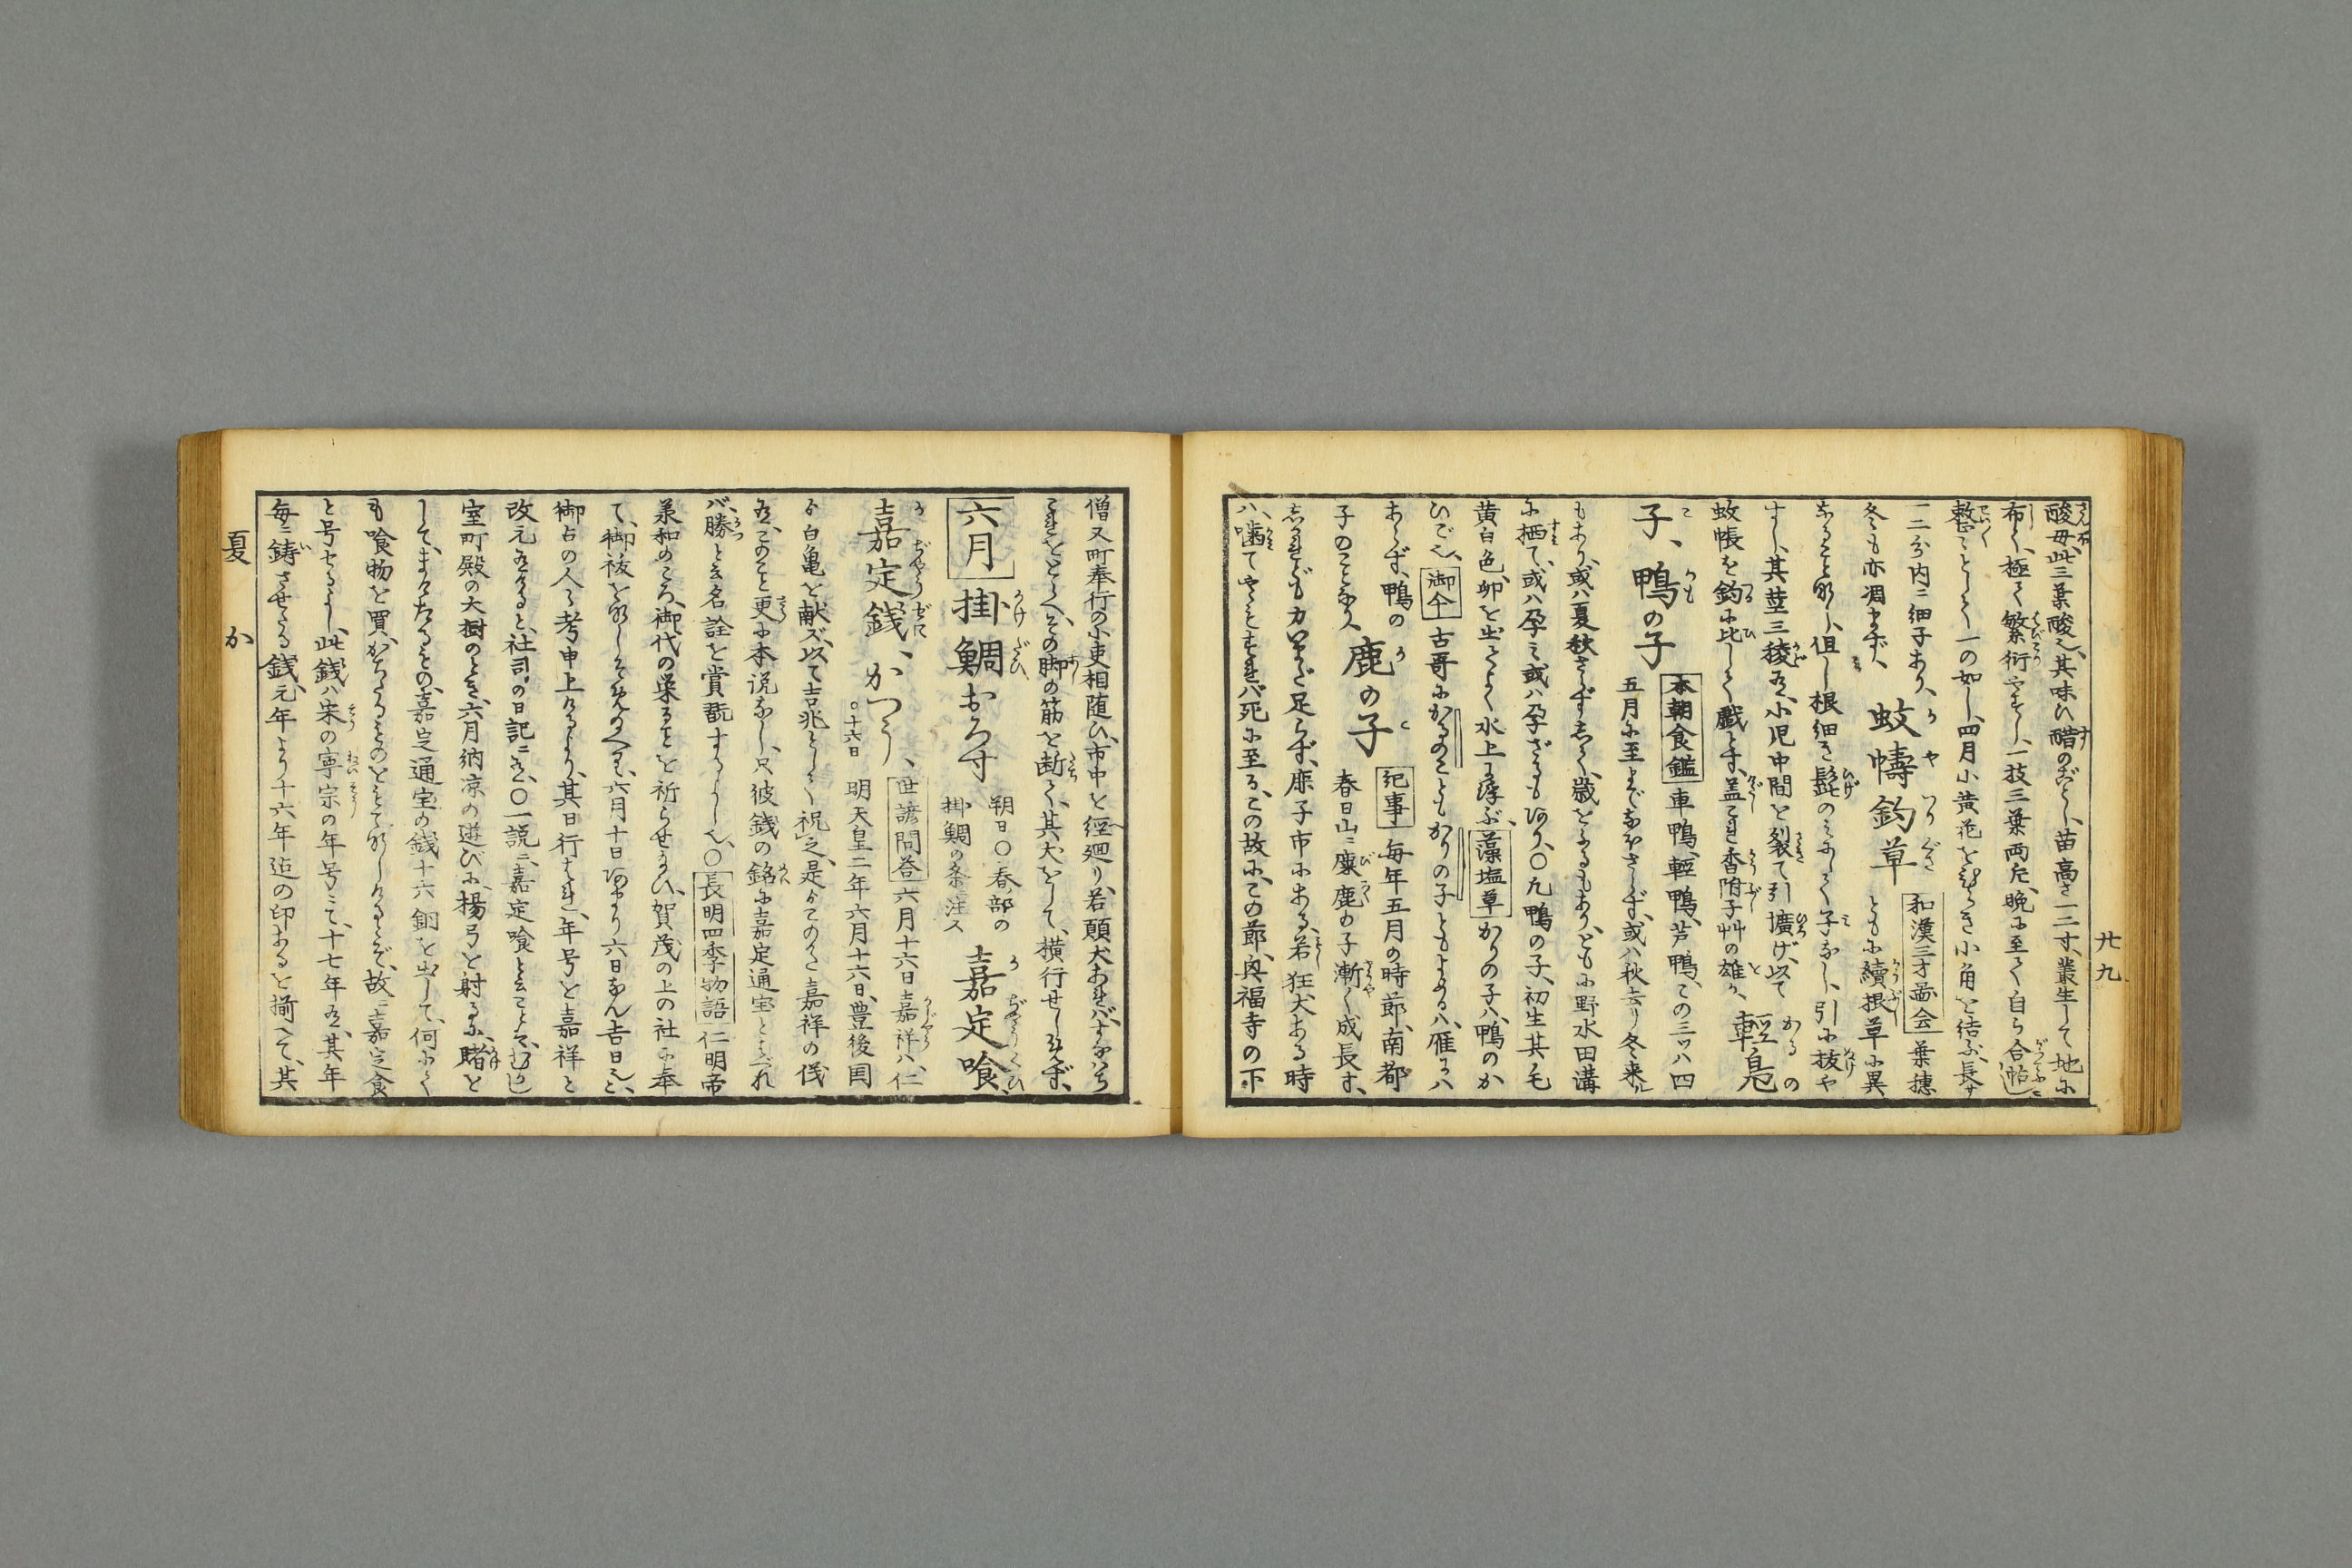 廿九
酸母此三葉酸し其味ひ醋のごとし、苗高さ一二寸、叢生して地に
布く、極て繁衍やすし、一枝三葉両片、晩に至て自ら合帖し
整ことしく一の如し、四月小黄花をひらき小角を結ぶ、長サ
一二分内ニ細子あり、
冬も亦凋まず、
蚊幮釣草
和漢三才図会
葉穂
ともに續根草に異
なること無し、但し根細き髭のみにて子なし、引に抜や
すし、其茎三稜有、小児中間を裂て引擴げ、以て
蚊帳を釣に比して戯とす、盖これ香附子艸の雄か、
輕鳧
かるの
子、鴨の子
本朝食鑑
車鴨、輕鴨、芦鴨、この三ツハ四
五月に至まで
さらず、或ハ秋去り冬来ル
もあり、或ハ夏秋さらずして、歳をふるもあり、ともに野水田溝
に栖て、或ハ孕ミ或ハ孕ざるもあり、〇凡鴨の子、初生其毛
黄白色、卵を出てよく水上に浮ぶ、
藻塩草
かりの子ハ、鴨のか
ひご也、
御傘
古哥にかるのこともかりの子ともよめるハ、雁にハ
あらず、鴨の
子のことなり、
鹿の子
紀事
毎年五月の時節、南都
春日山ニ麋鹿の子漸く成長す、
しかれども力いまだ足らず、鹿子市にある、若狂犬ある時
ハ、噛てやミをすれバ死に至る、この故に、この節、興福寺の下
僧又町奉行の小吏相随ひ、市中を經廻り、若頑犬あれバすなハち
これをとらへ、その脚の筋を断て、其犬をして、横行せしめず、
六月
掛鯛おろす
朔日〇春部の
掛鯛の条ニ注ス
嘉定喰、
嘉定銭、かつう、
〇十六日
世諺問答
六月十六日嘉祥ハ、仁
明天皇二年六月十六日、豊後国
より白亀を献ズ、以て吉兆として祝之、是よりこのかた嘉祥の儀
有、このこと更に本説なし、只彼銭の銘に嘉定通宝とあれ
バ、勝と云名詮を賞翫するよし也、〇
長明四季物語
仁明帝
承和のころ、御代の栄ることを祈らせ給ひ、賀茂の上の社に奉
て、御祓を
六月十日あまり六日なん吉日と、
御占の人々考申上けるより、其日行ハれ、年号を嘉祥と
改元有けると、社司の日記ニ有、〇一説ニ、嘉定喰と云ことハ、むかし
室町殿の大樹のとき、六月納凉の遊びに、楊弓を射るに、賭を
して、まけたるものハ、嘉定通宝の銭十六銅を出して、何にても
喰物を買、かちたるものを
故ニ嘉定食
と号せるよし、此銭ハ宋の寧宗の年号ニて、十七年有、其年
毎ニ鋳させたる銭、元年より十六年迄の印あるを揃へて、其
夏
か